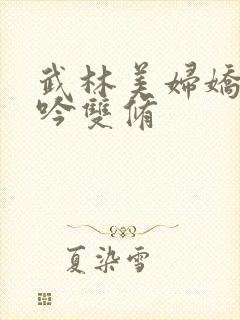 武林美婦嬌
吟雙脩
夏染雪